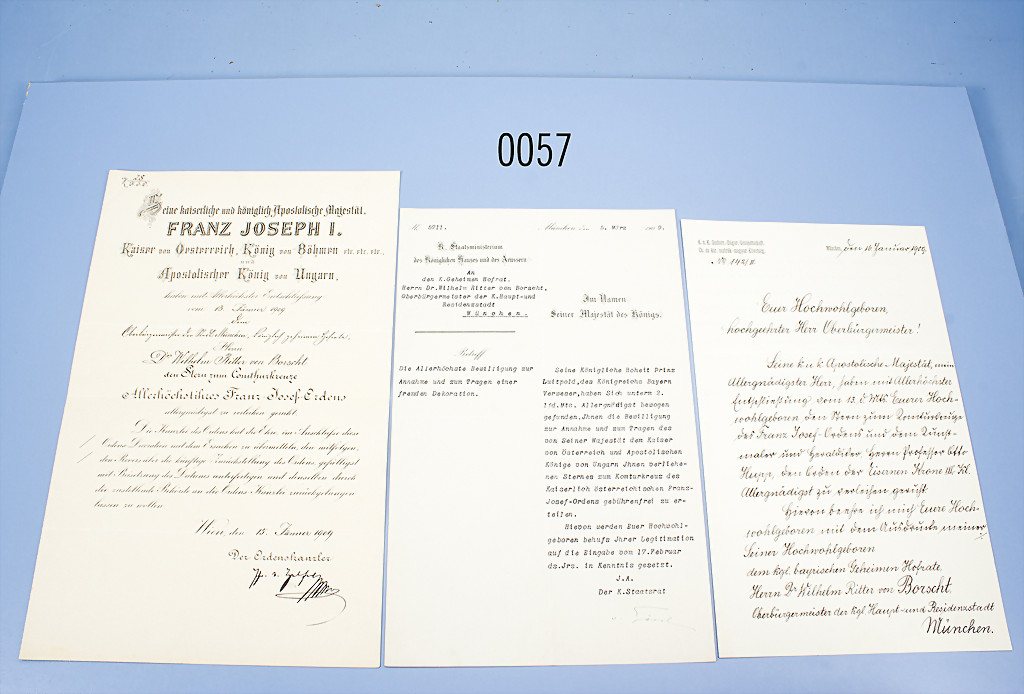 0057
Seine kaiserliche und königlich Apostolische Majestät,
FRANZ JOSEPH I.
Kaiser von Oesterreich, König von Böhmen etc. etc. etc.
und
Apostolischer König von Ungarn,
haben mit Allerhöchster Entschließung
vom 13. Jänner 1909
dem
Oberbürgermeister der Stadt München,
Herrn
Dr. Wilhelm Ritter von Borscht
den Stern zum Comthurkreuze
Allerhöchstihres Franz-Josef-Ordens
allergnädigst zu verleihen geruht.
Die Kanzlei des Ordens hat die Ehre, im Anschlusse diese
Ordens-Decoration mit dem Ersuchen zu übermitteln, den mitfolgen-
den Revers über die künftige Zurückstellung des Ordens gefälligst
mit Beisetzung des Datums unterfertigen und denselben durch
die zustellende Behörde an die Ordens-Kanzlei zurückgelangen
lassen zu wollen.
Wien, den 15. Jänner 1909
Der Ordenskanzler
München, den 5. März 1909.
K. Staatsministerium
des Königlichen Hauses und des Aeussern.
An
den K.Geheimen Hofrat,
Herrn Dr.Wilhelm Ritter von Borscht,
Oberbürgermeister der K.Haupt-und
Residenzstadt
München.
Betreff
Die Allerhöchste Bewilligung zur
Annahme und zum Tragen einer
fremden Dekoration.
Im Namen
Seiner Majestät des Königs.
Seine Königliche Hoheit Prinz
Luitpold, des Königreichs Bayern
Verweser, haben Sich unterm 2.
lfd.Mts. Allergnädigst bewogen
gefunden, Jhnen die Bewilligung
zur Annahme und zum Tragen des
von Seiner Majestät dem Kaiser
von Österreich und Apostolischen
Könige von Ungarn Jhnen verliehe-
nen Sternes zum Komturkreuz des
Kaiserlich Österreichischen Franz-
Josef-Ordens gebührenfrei zu er-
teilen.
Hiebon werden Euer Hochwohl-
geboren behufs Jhrer Legitimation
auf die Eingabe vom 17.Februar
ds.Jrs. in Kenntnis gesetzt.
J.A.
Der K.Staatsrat
München, den 18. Januar 1909
Euer Hochwohlgeboren,
hochgeehrter Herr Oberbürgermeister!
Seine k. u. k. Apostolische Majestät, mein
Allergnädigster Herr, haben mit Allerhöchster
Entschließung vom 13. d. Mts. Euerer Hoch-
wohlgeboren den Stern zum Komturkreuz
des Franz Josef-Ordens und dem Kunst-
maler und Heraldiker, Herrn Professor Otto
Hupp, den Orden der Eisernen Krone III. Kl.
Allergnädigst zu verleihen geruht.
Hievon beehre ich mich Euere Hoch-
wohlgeboren mit dem Ausdrucke meiner
Seiner Hochwohlgeboren
dem kgl. bayrischen Geheimen Hofrate,
Herrn Dr Wilhelm Ritter von Borscht,
Oberbürgermeister der kgl. Haupt- und Residenzstadt
München.